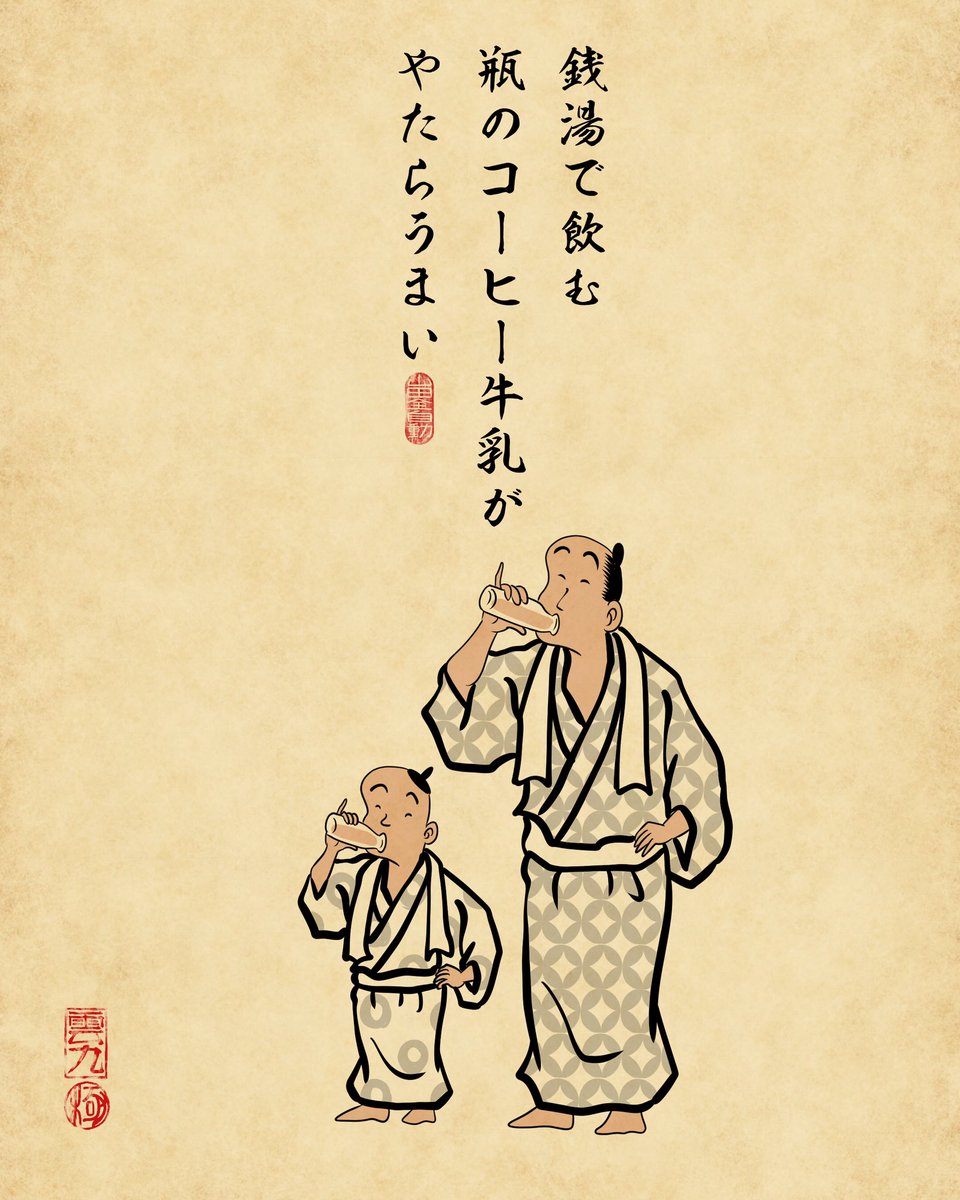 銭湯で飲む
瓶のコーヒー牛乳が
やたらうまい
雲九
極